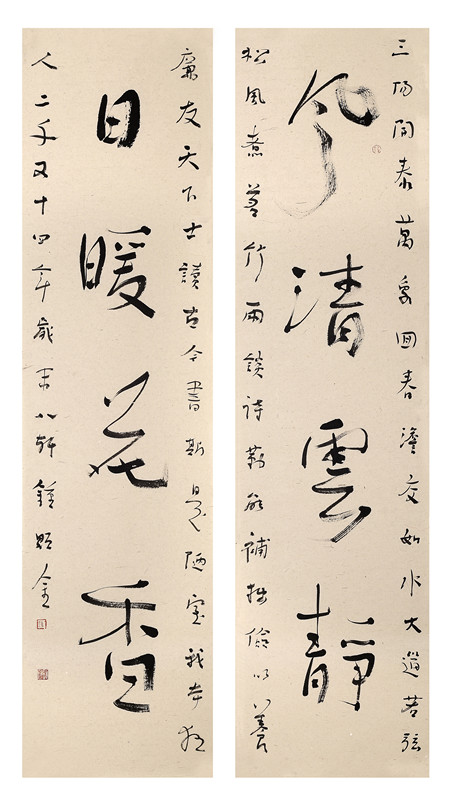 三陽開泰萬象回春澹交如水大道若弦
風清雲靜
松風煮茗竹雨談詩勤能補拙儉以養
廉友天下士讀古今書斯是陋室我本狂
日暖花香
人二千又十四年歲末八軒鍾